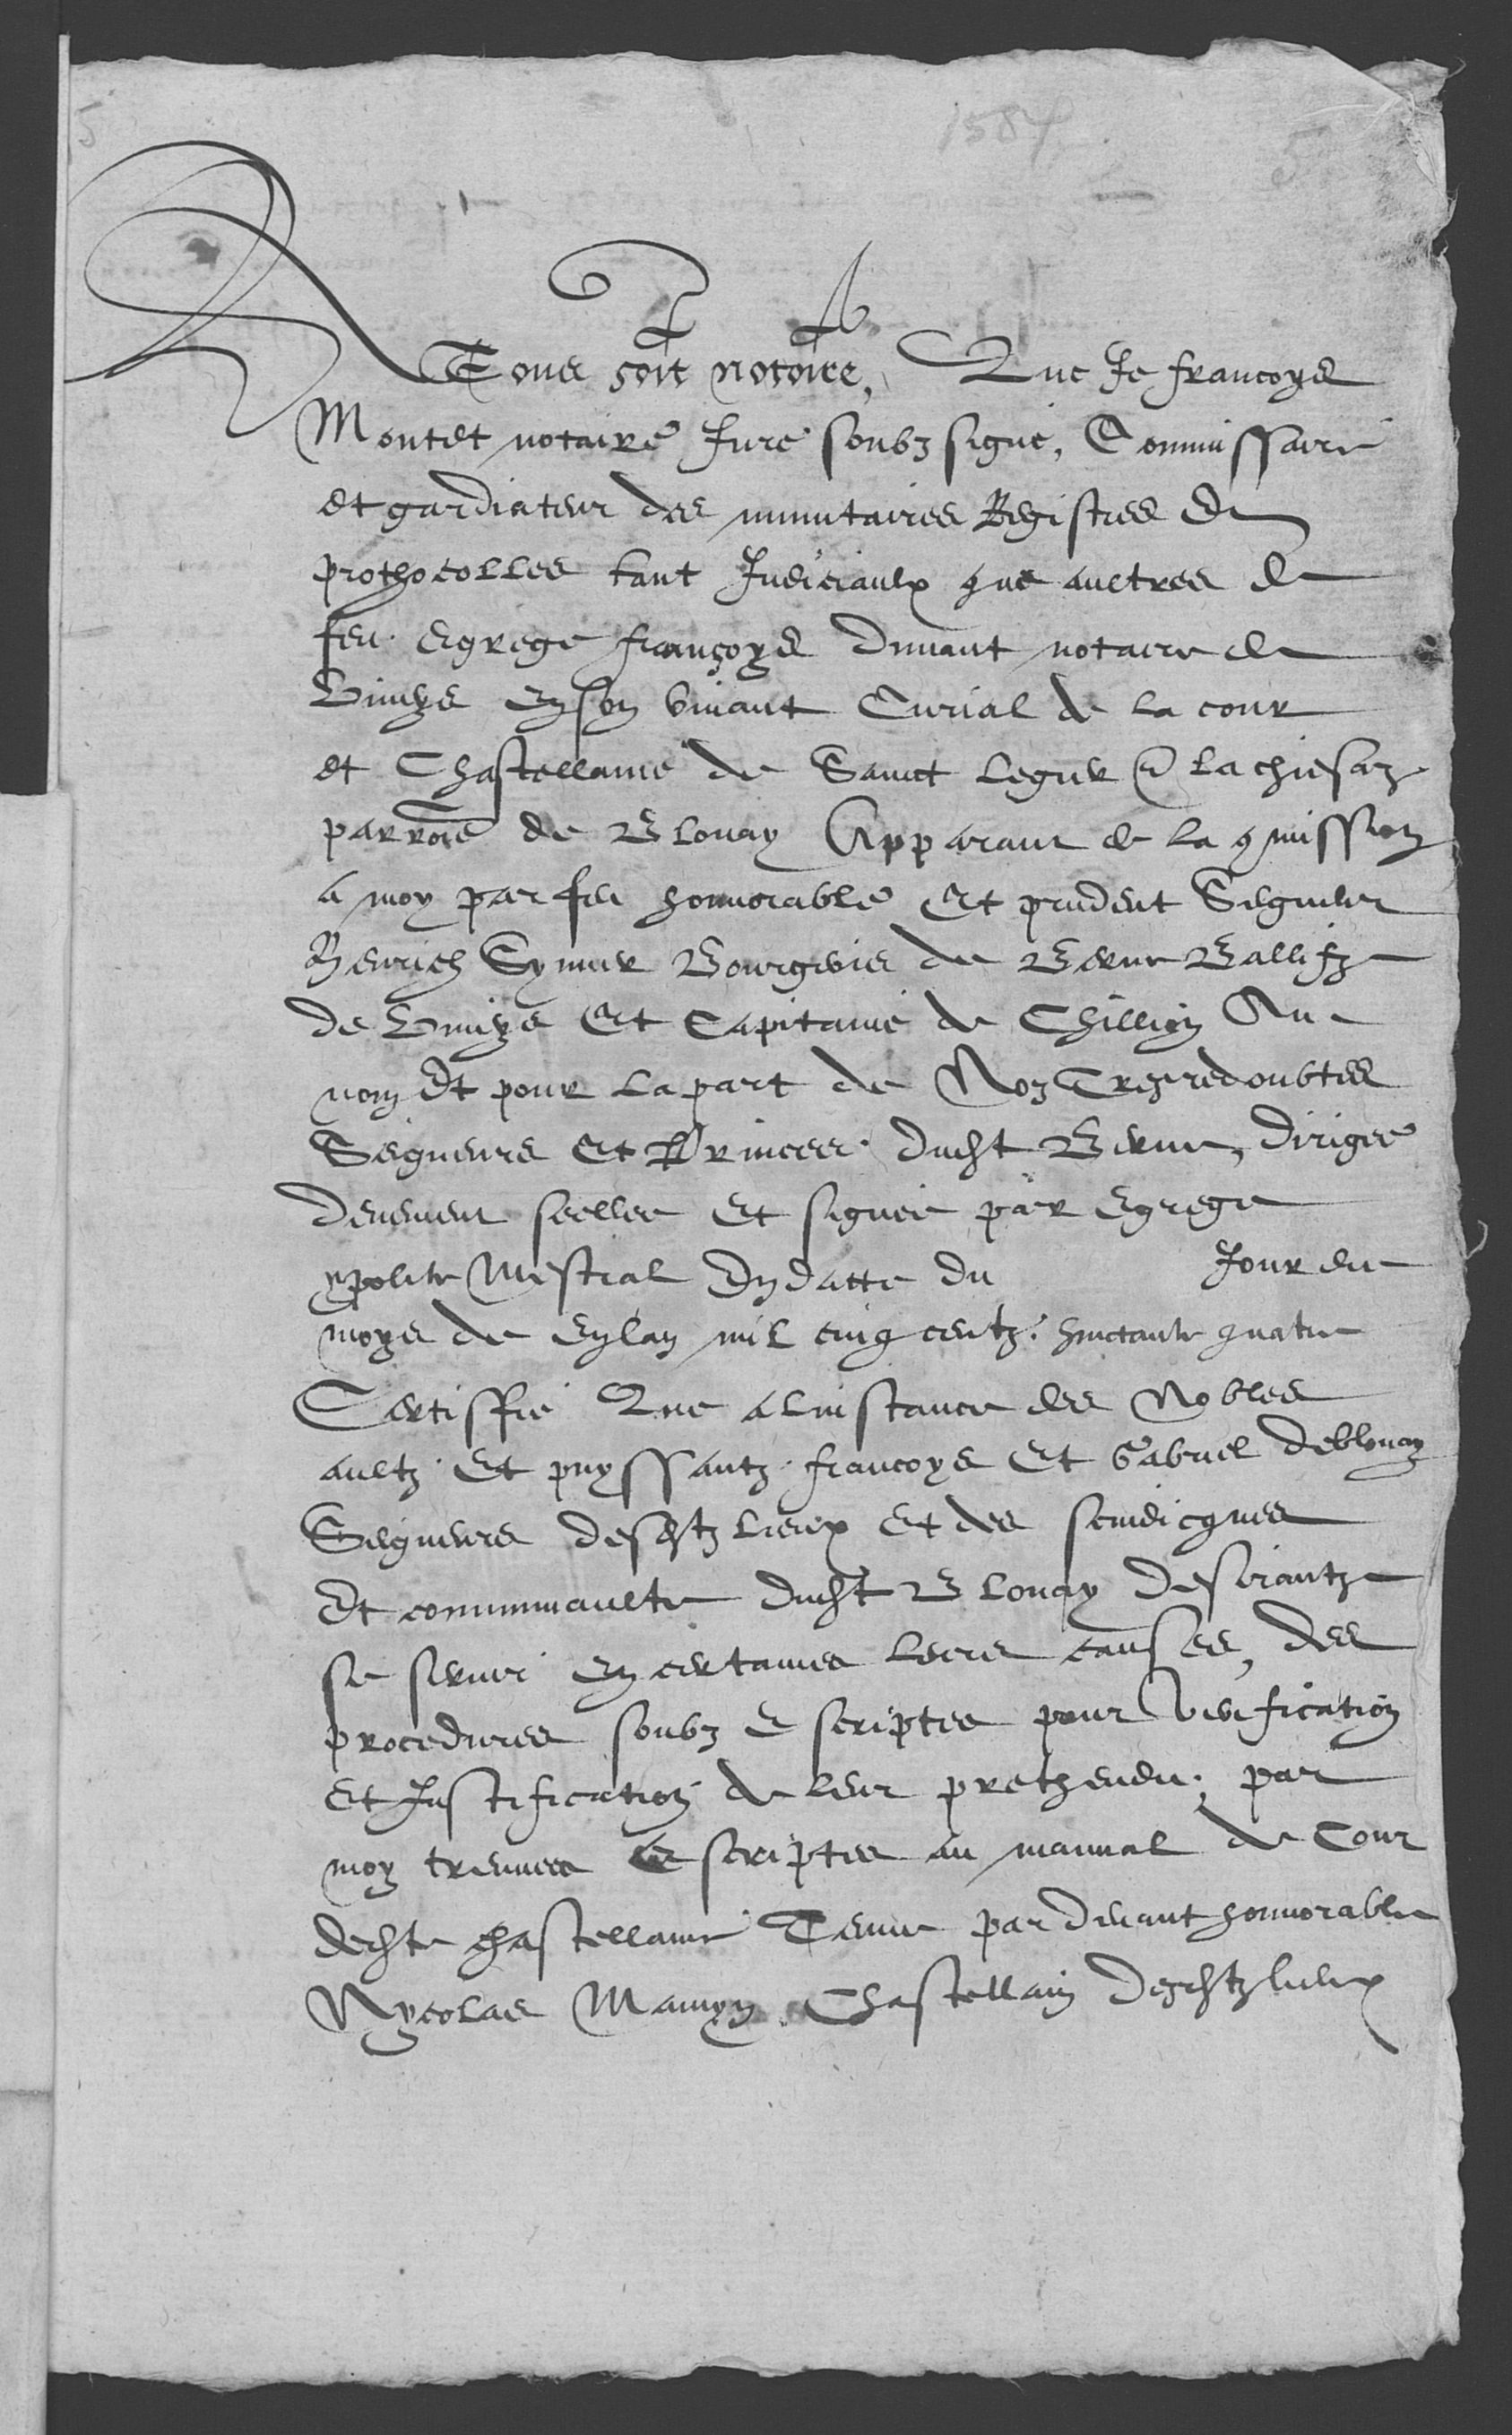 1584
5
5
A Tous soit notoire, Que Je francoys
Montet notaire Jure soubzsigné, Commissaire
et gardiateur des minutaires Registres et
prothocolles tant Judiciaulx que aultres de
feu egrege françoys Dunant notaire de
Viveys en son vivant Curial de la cour
et Chastellanie de Sainct Legier et Lachiesaz
parroche de Blonay Apparant de la comission
a moy par feu honnorable et prudent Seigneur
Henrich Bourgeois de Berne Ballifz
de Viveys et Capitaine de Chillion Au
nom et pour la part de Noz Tresredoubtes
Seigneurs et Princes dudit Berne, dirigee
deuement seellee et signee par Egrege
ypolite Mestral en datte du jour du
moys de mil cinq centz huictante quatre
Certiffie Que a linstance des Nobles
aultz et puyssantz francoys et Gabriel de Blonay
Seigneurs desditz lieux et des scindicques
et communaulte dudit Blonay desirantz
se servir en certaines leurs causes, des
procedures soubz escriptes pour verification
et Justification de leur prethendu, par
moy treuvees escriptes au manual de Cour
dedite chastellanie Tenue par devant honnorable
Nycolas Mamyn Chastellain desditz lieux